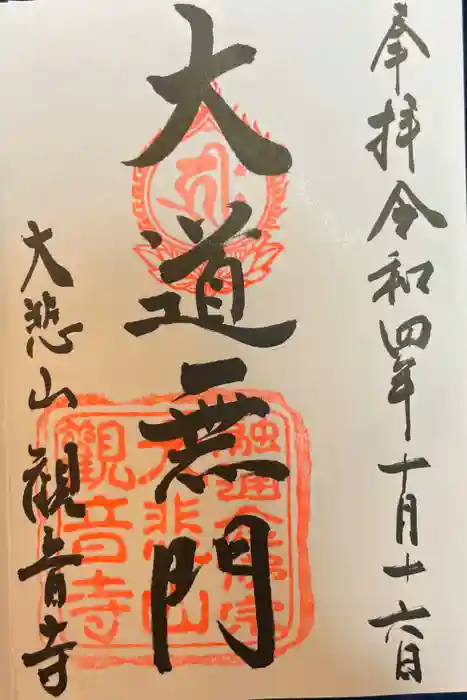 奉拝令和四年十月十六日
大道無門
大悲山観音寺
融通念佛宗
大悲山
觀音寺